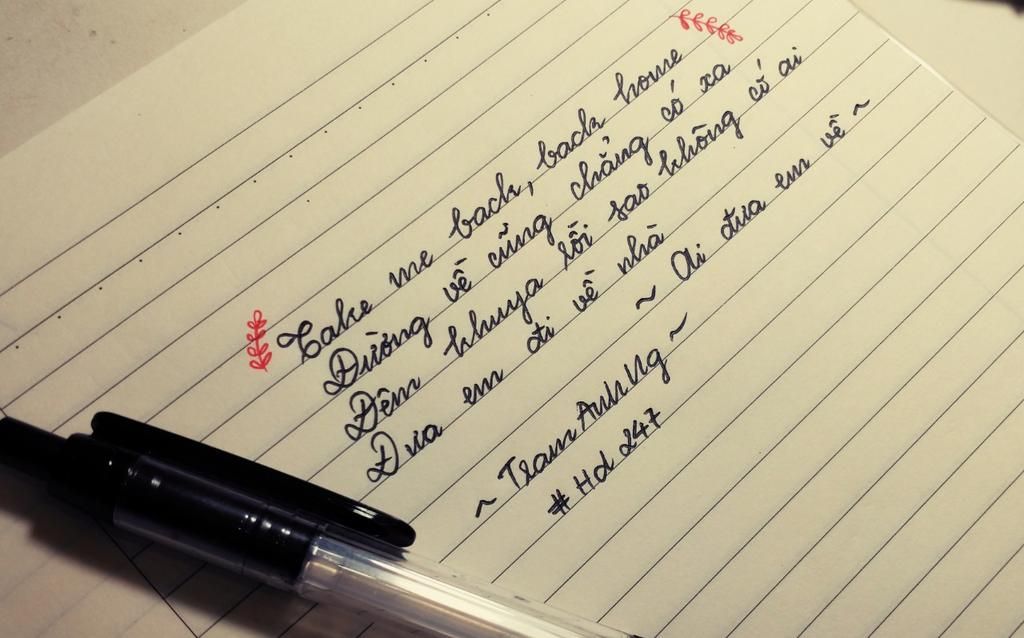 Take me back, back home
Đường về cũng chẳng có xa
Đêm khuya lối sao không có ai
Đưa em đi về nhà
~ Ai đưa em về ~
~ Tram Anh Ng ~
# Hd 247